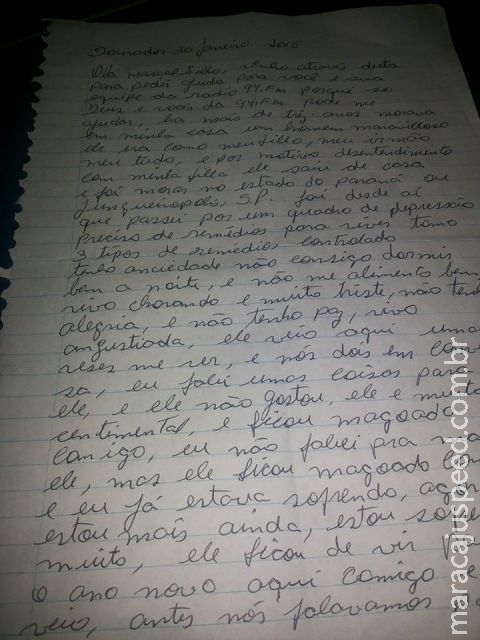 Dourados 30 Janeiro 2015
Olá marçal Filho, venho através desta
para pedir ajuda para você e sua
equipe da radio 94.FM porqué so
Deus e voces da 94.FM pode me
ajudar, ha mais de trez anos morava
em minha casa um homem maravilhoso
ele era como meu filho, meu irmão
meu tudo, e por motivos desentendimento
com minha filha ele saiu de casa
e foi morar no estado do paraná ou
Junqueiropolis, S.P. foi desde ai
que passei por um quadro de depressão
preciso de remédios para viver tomo
3 tipos de remédios controlado
tenho anciédade não consigo dormir
bem a noite, e não me alimento bem
vivo chorando e muito triste, não tenh
alegria, e não tenho paz, vivo
angustiada, ele veio aqui umas
veses me ver, e nós dois em conve
sa, eu falei umas coisas para
ele, e ele não gostou, ele e muito
centimental, e ficou magoado
comigo, eu não falei pra ma
ele, mas ele ficou magoado com
e eu já estava sofrendo, agor
estou mais ainda, estou sofre
muito, ele ficou de vir pa
o ano novo aqui comigo e
veio, antes nós falavamos
maracajuspeed.com.br